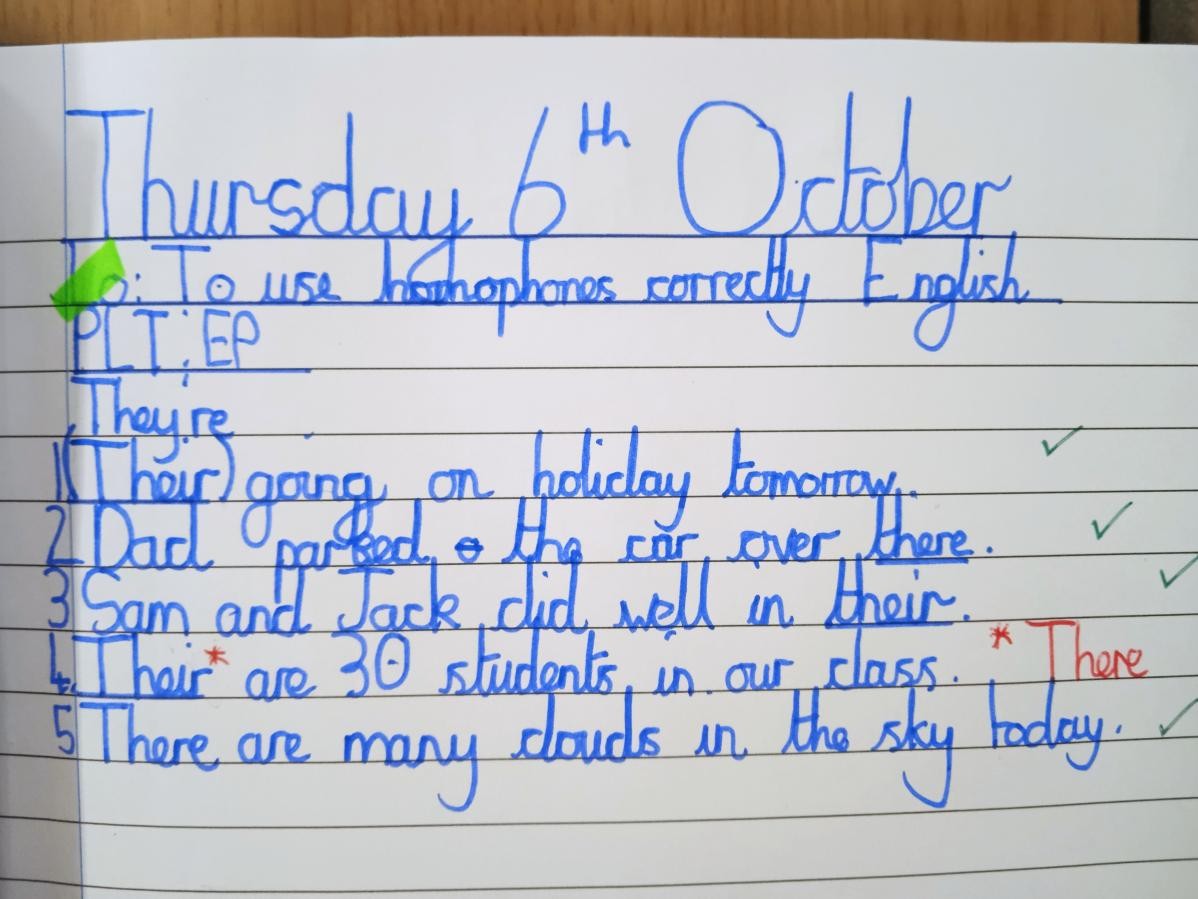 Thursday 6th October
Lo: To use homophones correctly English
PLT: EP
They're
1(Their) going on holiday tomorrow.
2 Dad parked the car over there.
3 Sam and Jack did well in their.
4. Their* are 30 students in our class. * There
5 There are many clouds in the sky today.